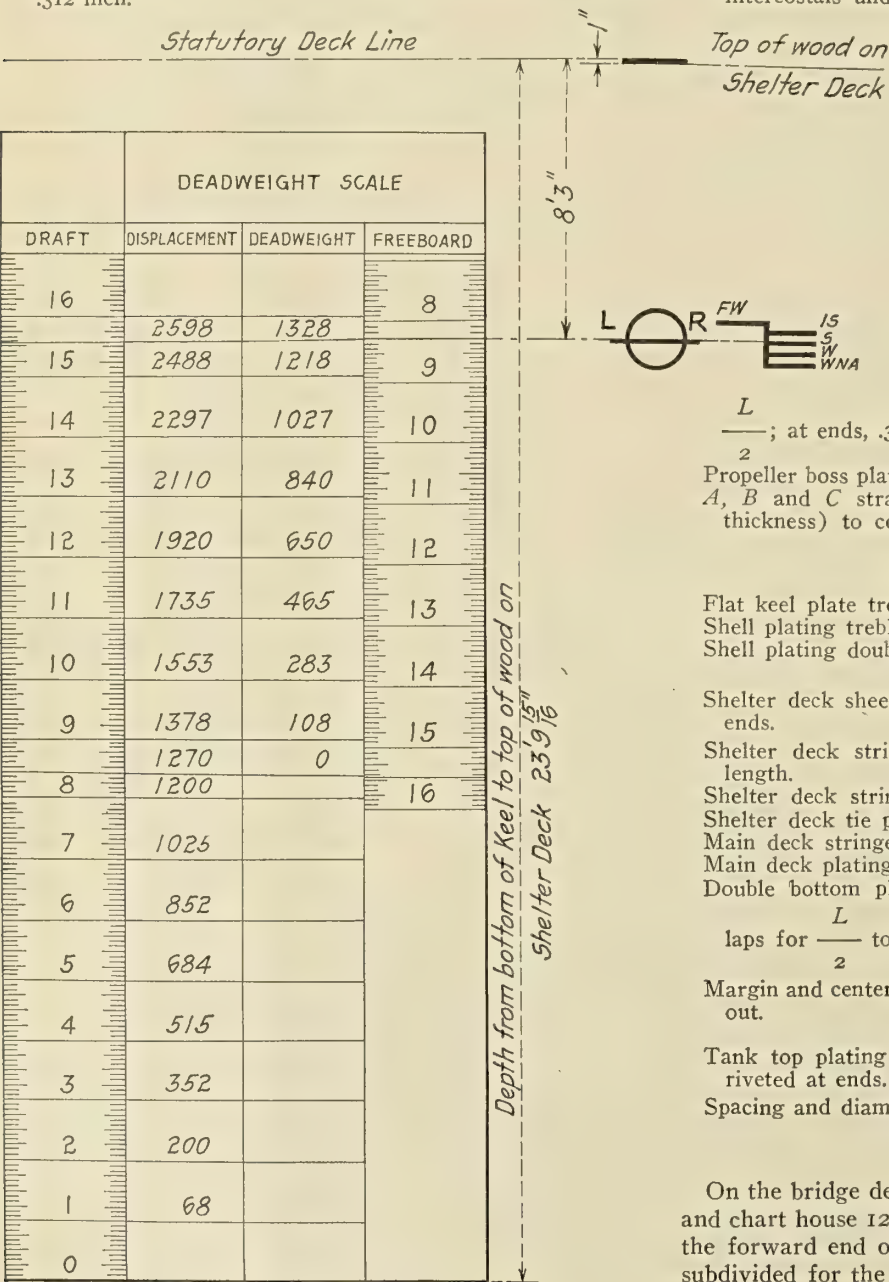 .312 inch.
intercostals and
Statutory Deck Line
1"
Top of wood on
Shelter Deck
8'3"
DEADWEIGHT SCALE
DRAFT DISPLACEMENT DEADWEIGHT FREEBOARD
16 8
2598 1328
15 2488 1218 9
14 2297 1027 10
13 2110 840 11
12 1920 650 12
11 1735 465 13
10 1553 283 14
9 1378 108 15
1270 0
8 1200 16
7 1025
6 852
5 684
4 515
3 352
2 200
1 68
0
Depth from bottom of Keel to top of wood on
Shelter Deck 23'9 15/16"
L R FW IS
S
W
WNA
L
—; at ends, .3
2
Propeller boss plat
A, B and C stra
thickness) to ce
Flat keel plate tre
Shell plating trebl
Shell plating doub
Shelter deck shee
ends.
Shelter deck stri
length.
Shelter deck strin
Shelter deck tie p
Main deck stringe
Main deck plating
Double bottom pl
L
laps for — to
2
Margin and center
out.
Tank top plating
riveted at ends.
Spacing and diam
On the bridge de
and chart house 12
the forward end o
subdivided for the